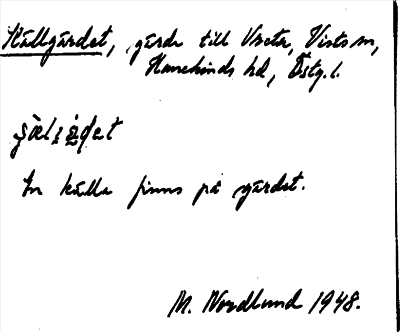 Källgärdet, gärde till Vreta, Vists sn,
Hanekinds hd, Östg. l.
En källa finns på gärdet.
M. Nordlund 1948.